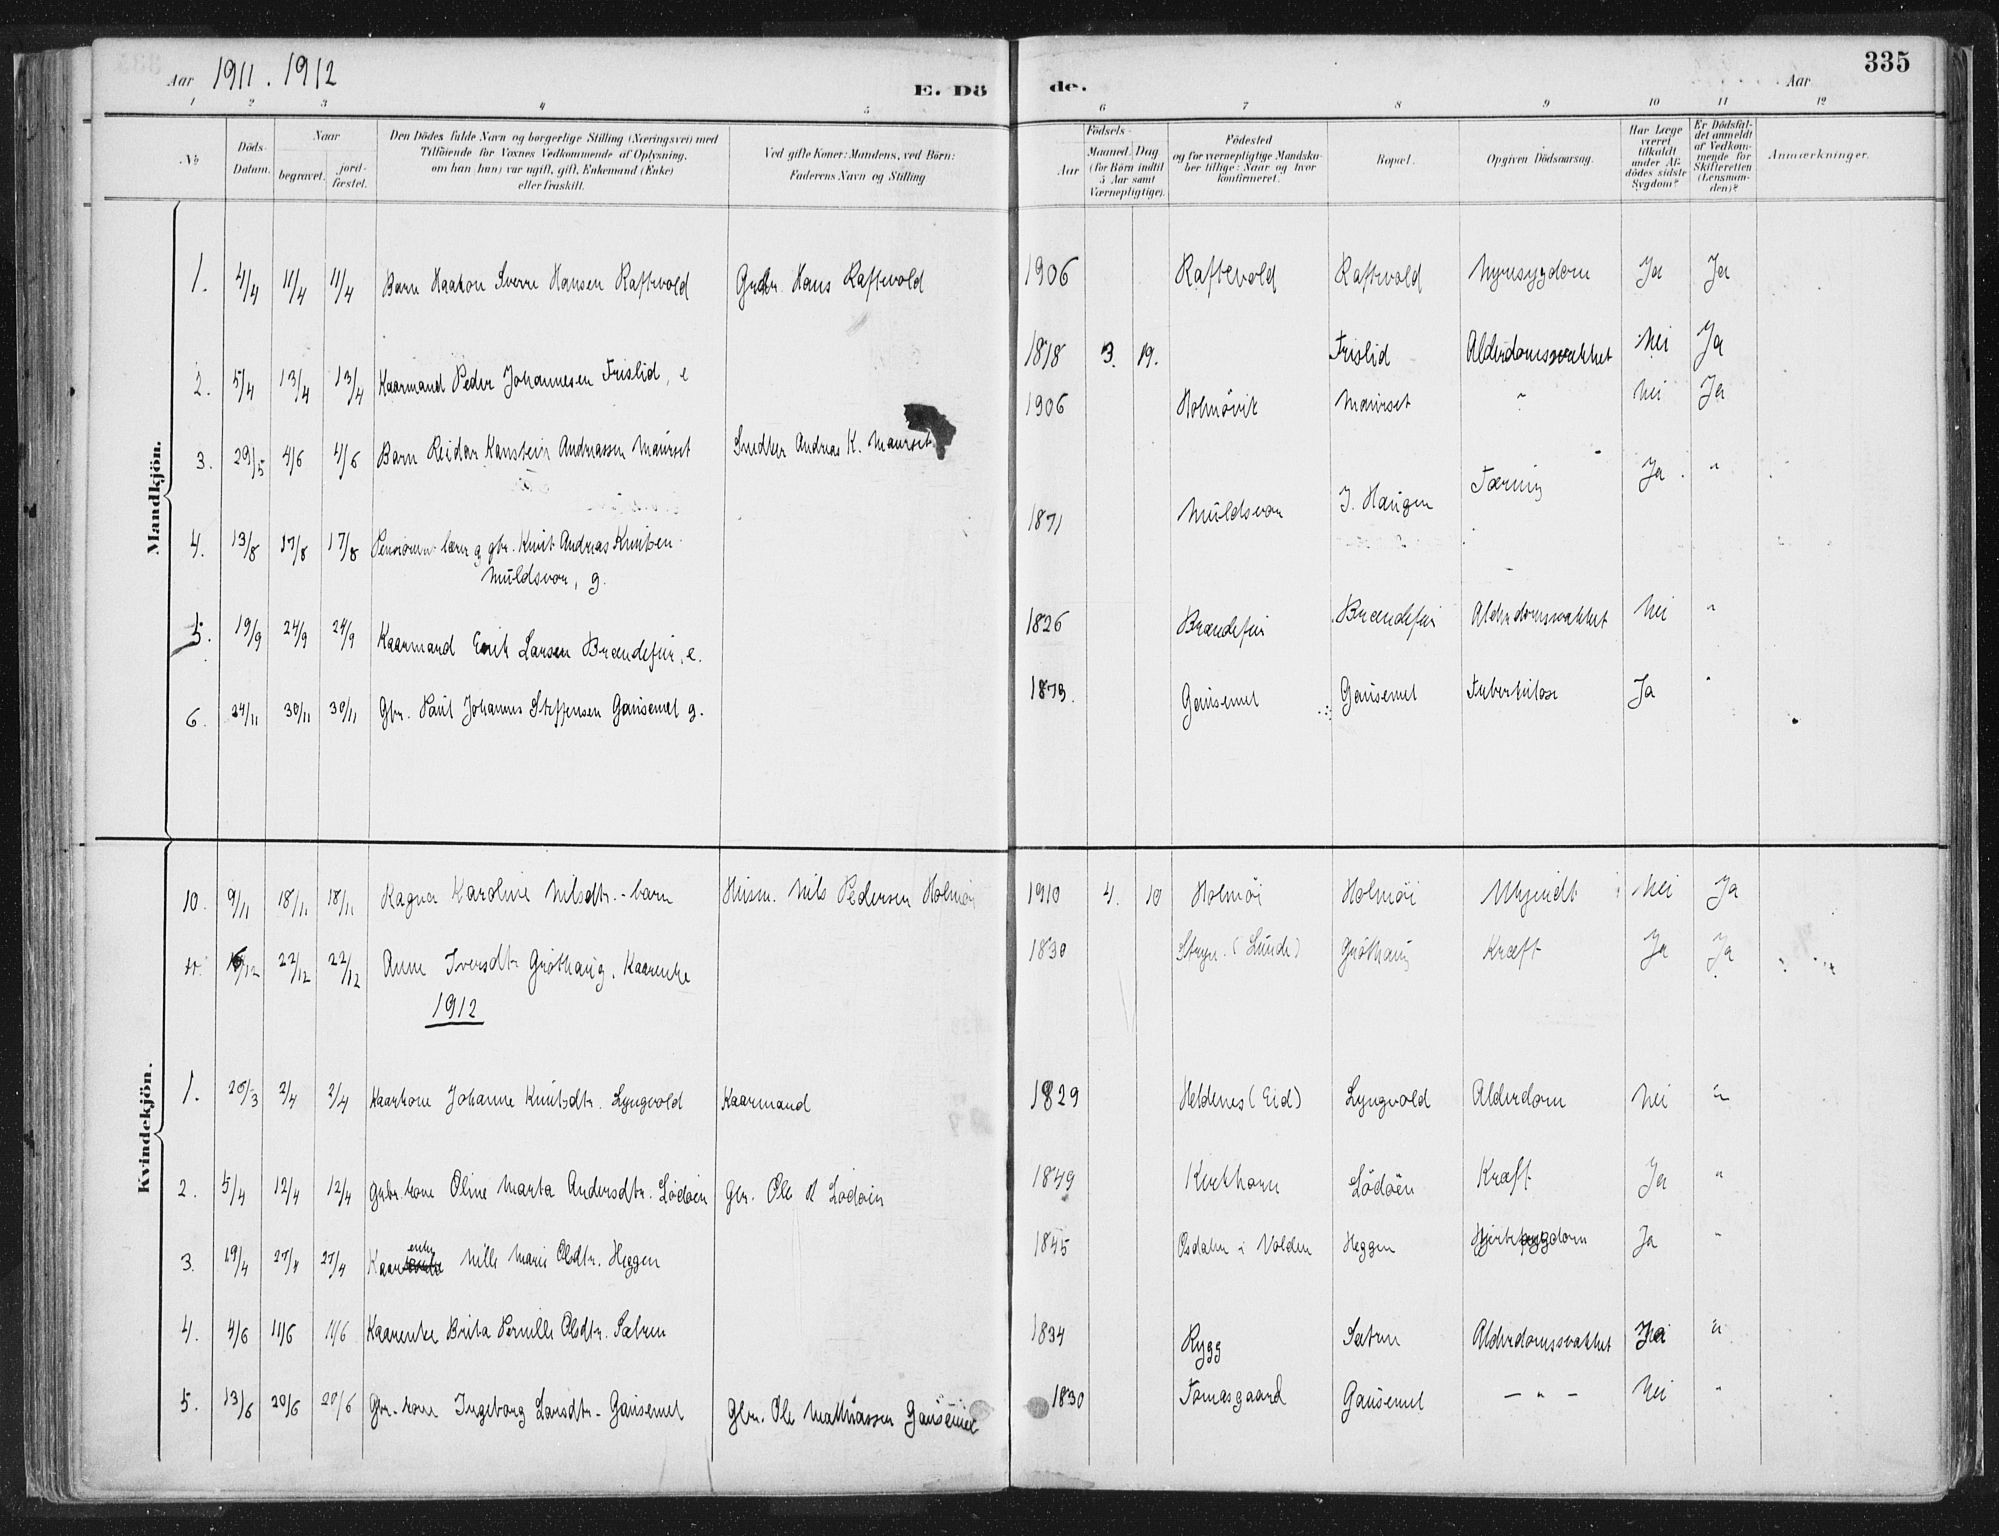 335
Aar 1911. 1912
E. Dö de.
Aar
1 2 3 4 5 6 7 8 9 10 11 12
No
Döds-Datum.
Naar
begravet.
jord-fæstet.
Den Dödes fulde Navn og borgerlige Stilling (Næringsvei) med
Tilföiende for Voxnes Vedkommende af Oplysning,
om han (hun) var ugift, gift, Enkemand (Enke)
eller fraskilt.
Ved gifte Koner: Mandens, ved Börn:
Faderens Navn og Stilling
Födsels-
Aar
Maaned. Dag
(for Börn indtil
5 Aar samt
Værnepligtige).
Födested
og for værnepligtige Mandska-
ber tillige: Naar og hvor
konfirmeret.
Bopæl.
Opgiven Dödsaarsag.
Har Læge
været
tilkaldt
under Af-
dödes sidste
Sygdom?
Er Dödsfal-
det anmeldt
af Vedkom-
mende for
Skifteretten
(Lensman-
den)?
Anmærkninger.
Mandkjön.
1. 4/4 11/4 11/4 Barn Haakon Sverre Hansen Raftevold Gbr. Hans Raftevold 1906 Raftevold Raftevold Nyresygdom Ja Ja
2. 5/4 13/4 13/4 Kaarmand Peder Johannesen Frislid, e 1818 3. 19. Frislid Alderdomssvakhet Nei Ja
3. 29/5 4/6 4/6 Barn Reidar Kanstein Andreassen Maurset Snedker Andreas K. Maurset 1906 Holmövik Maurset " Nei Ja
4. 13/8 17/8 17/8 lærer g gbr. Knut Andreas Knutsen
Muldsvor, g. 1871 Muldsvor J. Haugen Tæring Ja "
5. 19/9 24/9 24/9 Kaarmand Erik Larsen Brændefur, e. 1826 Brændefur Brændefur Alderdomssvakhet Nei "
6. 24/11 30/11 30/11 Gbr. Paul Johannes Steffensen Gausemel g. 1879. Gausemel Gausemel Tuberkulose Ja "
Kvindekjön.
10. 9/11 18/11 18/11 Ragna Karoline Nilsdtr. - barn Husm. Nils Pedersen Holmöi 1910 4. 10 Holmöi Holmöi Ukjendt Nei Ja
22/12 22/12 Anne Iversdtr Gröthaug, Kaarenke 1830 Stryn. (Lunde) Gröthaug Kræft Ja Ja
1912
1. 20/3 2/4 2/4 Kaarkone Johanne Knutsdtr. Lyngvold Kaarmand 1829 Heldenes (Eid) Lyngvold Alderdom Nei "
2. 5/4 12/4 12/4 Gbr. kone Oline Marta Andersdtr. Lödöen Gbr. Ole Lödöen 1849 Kirkhorn Lödöen Kræft Ja "
3. 19/4 27/4 27/4 Kaarenke Nille Marie Olsdtr. Heggen 1845 Osdalen i Volden Heggen Hjertesygdom Ja "
4. 4/6 11/6 11/6 Kaarenke Brita Pernille Olsdtr. Sætren 1834 Rygg Sætren Alderdomssvakhet Nei "
5. 13/6 20/6 20/6 Gbr. kone Ingeborg Larsdtr. Gausemel Gbr. Ole Mathiassen Gausemel 1830 Tomasgaard Gausemel – " – Nei "